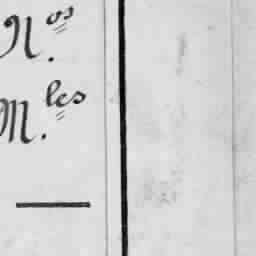 N.os
M.les